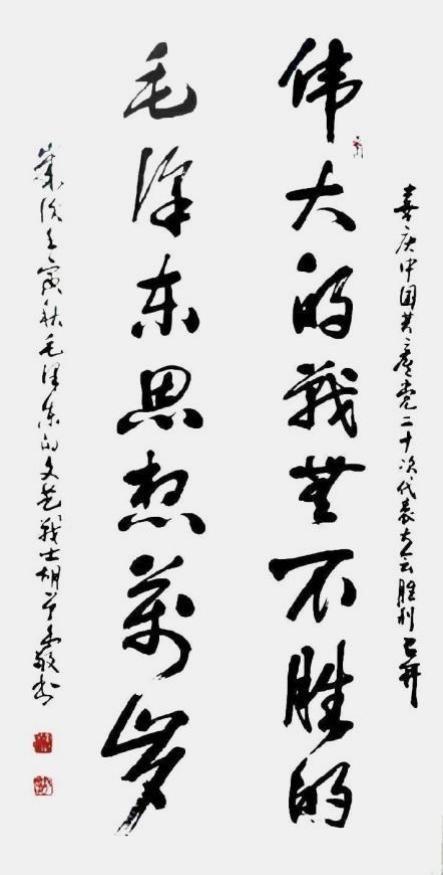 喜庆中国共產党二十次代表大会胜利召开
伟大的戰無不胜的
毛泽东思想萬岁
歲次壬寅秋毛泽东的文艺战士胡敬书